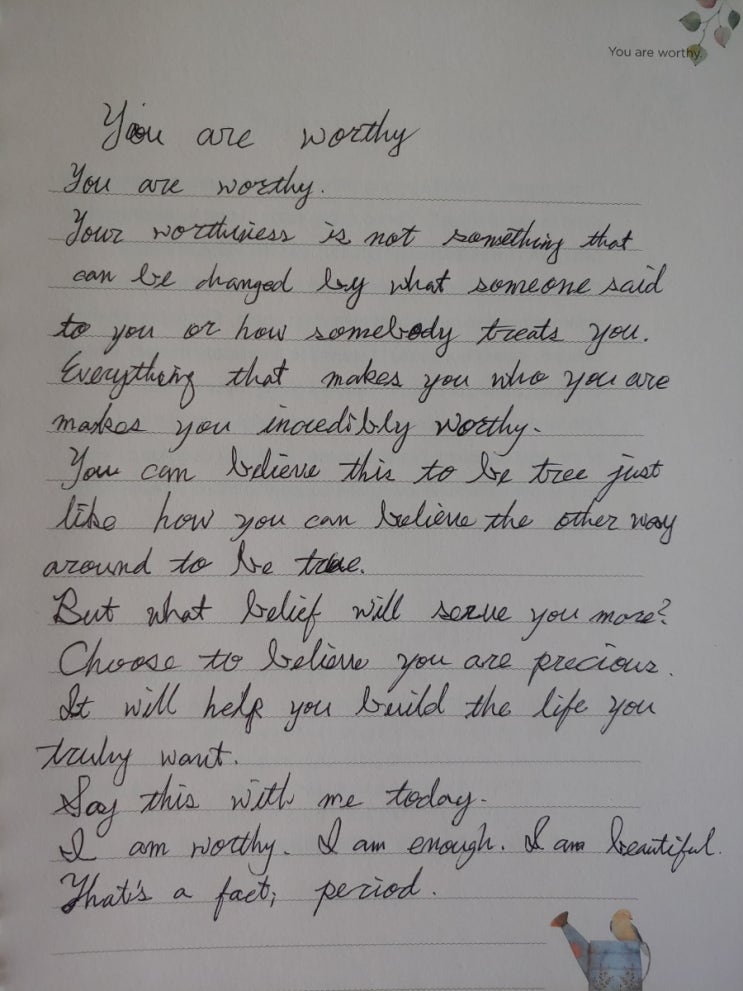 You are worthy.
You are worthy
You are worthy.
Your worthiness is not something that
can be changed by what someone said
to you or how somebody treats you.
Everything that makes you who you are
makes you incredibly worthy.
You can believe this to be tree just
like how you can believe the other way
around to be true.
But what belief will serve you more?
Choose to believe you are precious.
It will help you build the life you
truly want.
Say this with me today.
I am worthy. I am enough. I am beautiful.
That's a fact; period.